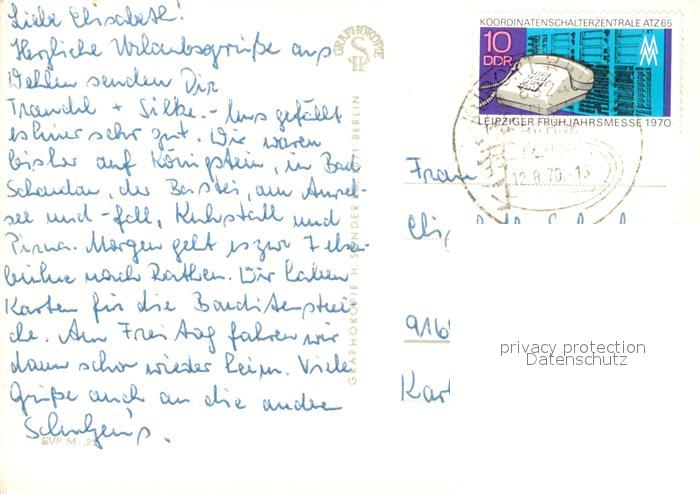 Liebe Elisabeth!
Herzliche Urlaubsgrüße aus
Wehlen senden Dir
Traudel + Silke. - Uns gefällt
es hier sehr gut. Wir waren
bisher auf Königstein, in Bad
Schandau, der Bastei, am Amsel-
see und -fall, Kuhstall und
Pirna. Morgen geht es zur Felsen-
bühne nach Rathen. Wir haben
Karten für die Banditenstrei-
che. Am Freitag fahren wir
dann schon wieder heim. Viele
Grüße auch an die anderen
Schulzen's.
EVP M -,25
GRAPHOKOPIE
GRAPHOKOPIE H. SONDER 1071 BERLIN
KOORDINATENSCHALTERZENTRALE ATZ 65
10
DDR
LEIPZIGER FRÜHJAHRSMESSE 1970
12.8.70.-13
Frau
916
privacy protection
Datenschutz